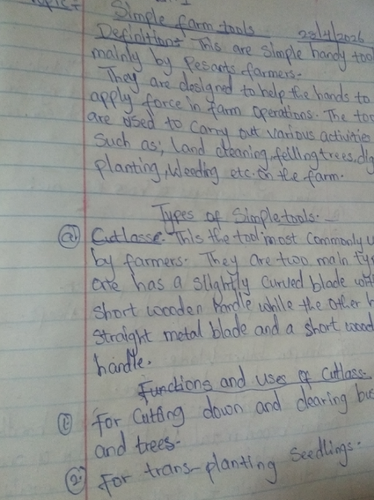 Topic:
Simple farm tools 28/4/2026
Definition: This are simple handy tool
mainly by pesants farmers.
They are designed to help the hands to
apply force in farm operations. The too
are used to carry out various activities
Such as; land cleaning, felling trees, dig
planting, Weeding etc. on the farm.
Types of Simple tools.
(a) Cutlasse. This the tool most commonly u
by farmers. They are two main ty
one has a slightly curved blade with
short wooden handle while the other h
straight metal blade and a short wood
handle.
Functions and uses of Cutlass
(1) For Cutting down and clearing bus
and trees.
(2) For trans-planting Seedlings.